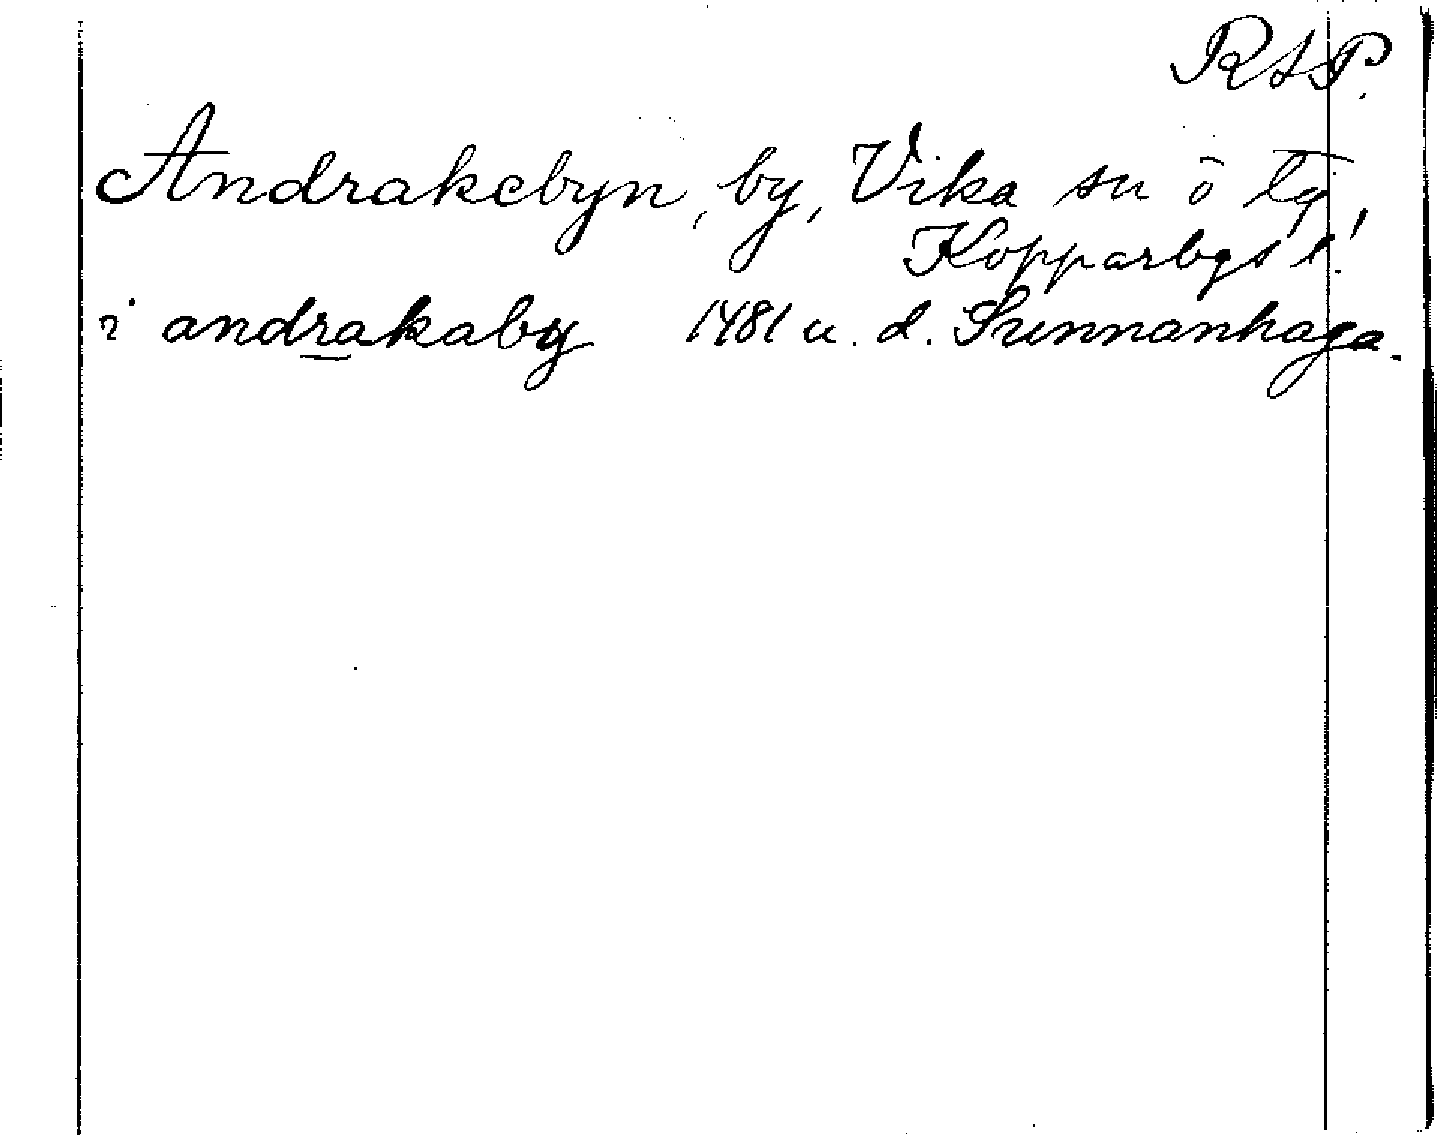 RAP.
Andrakebyn, by, Vika sn ō tg,
Kopparbgs l!
i andrakaby 1481 u. d. Sunnanhaga.